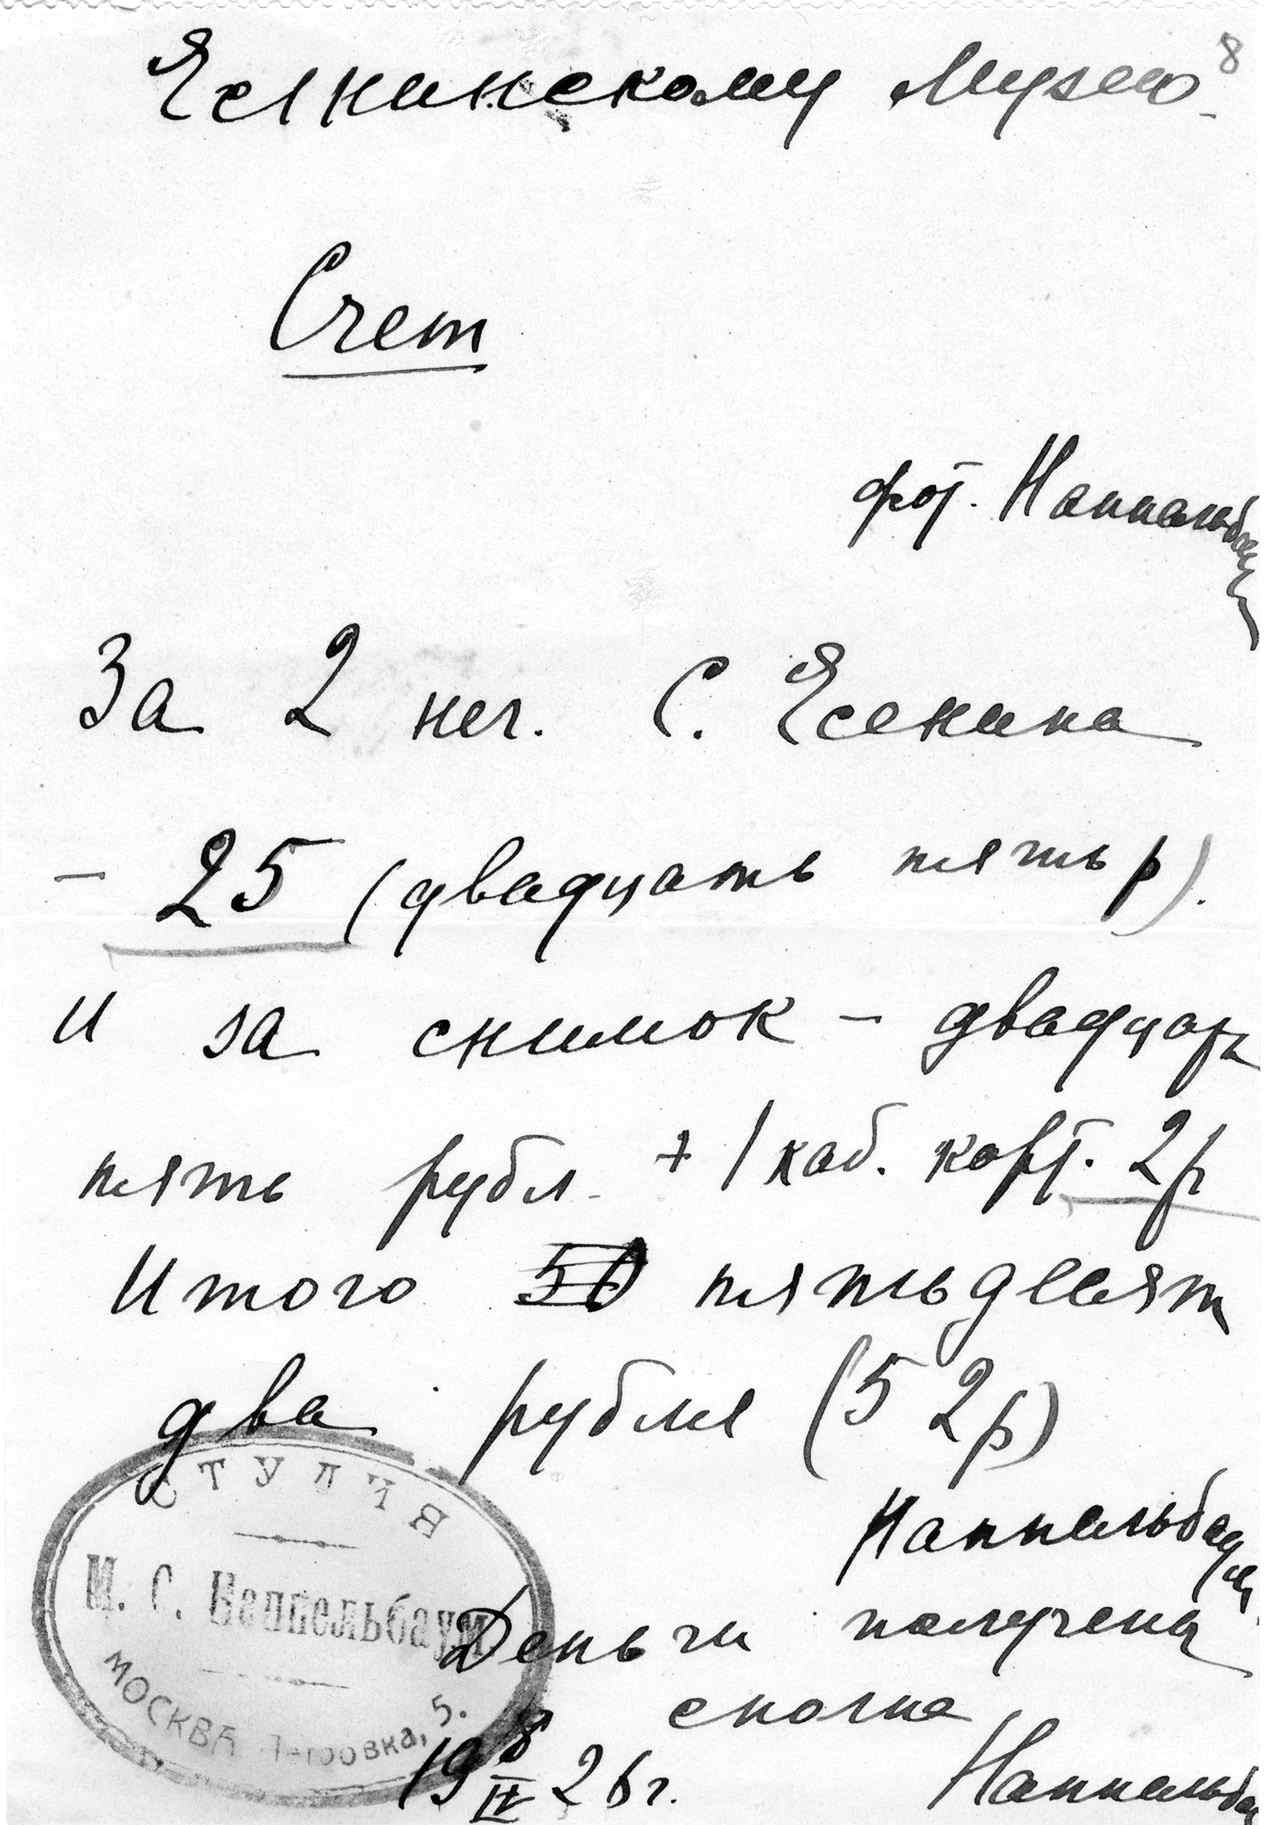 8
Есенинскому Музею
Счет
фот. Наппельбаум
За 2 нег. С. Есенина
– 25 (двадцать пять р).
и за снимок – двадцать
пять рубл. + 1 каб. карт. 2р
Итого 50 пятьдесят
два рубля (52р)
Наппельбаум
Деньги получены
сполна
19 8/IV 26 г.
Наппельбаум
СТУДИЯ
М. С. Наппельбаум
МОСКВА Петровка, 5.